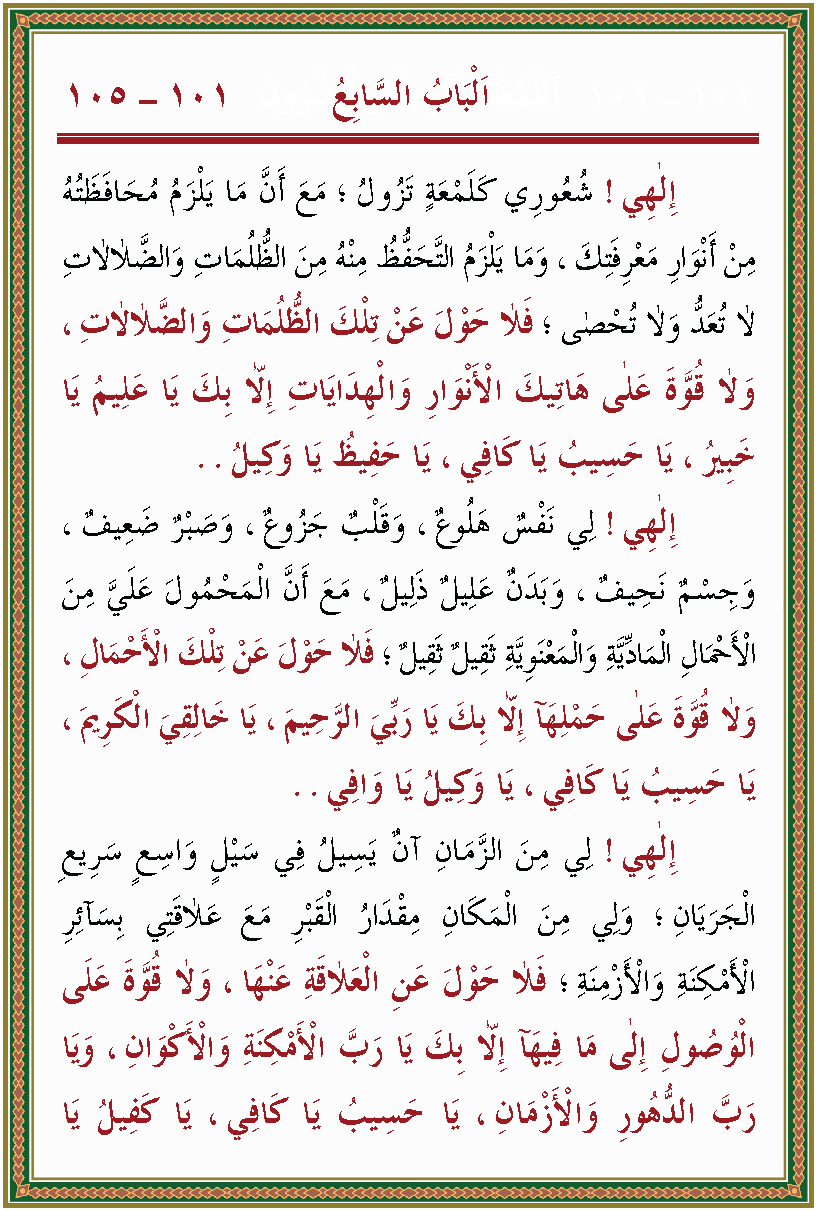 اَلْبَابُ السَّابِعُ ١٠١ – ١٠٥
إِلٰهِي ! شُعُورِي كَلَمْعَةٍ تَزُولُ ؛ مَعَ أَنَّ مَا يَلْزَمُ مُحَافَظَتُهُ
مِنْ أَنْوَارِ مَعْرِفَتِكَ ، وَمَا يَلْزَمُ التَّحَفُّظُ مِنْهُ مِنَ الظُّلُمَاتِ وَالضَّلاٰلاٰتِ
لاٰ تُعَدُّ وَلاٰ تُحْصٰى ؛ فَلاٰ حَوْلَ عَنْ تِلْكَ الظُّلُمَاتِ وَالضَّلاٰلاٰتِ ،
وَلاٰ قُوَّةَ عَلٰى هَاتِيكَ الْأَنْوَارِ وَالْهِدَايَاتِ إِلاّٰ بِكَ يَا عَلِيمُ يَا
خَبِيرُ ، يَا حَسِيبُ يَا كَافِي ، يَا حَفِيظُ يَا وَكِيلُ . .
إِلٰهِي ! لِي نَفْسٌ هَلُوعٌ ، وَقَلْبٌ جَزُوعٌ ، وَصَبْرٌ ضَعِيفٌ ،
وَجِسْمٌ نَحِيفٌ ، وَبَدَنٌ عَلِيلٌ ذَلِيلٌ ، مَعَ أَنَّ الْمَحْمُولَ عَلَيَّ مِنَ
الْأَحْمَالِ الْمَادِّيَّةِ وَالْمَعْنَوِيَّةِ ثَقِيلٌ ثَقِيلٌ ؛ فَلاٰ حَوْلَ عَنْ تِلْكَ الْأَحْمَالِ ،
وَلاٰ قُوَّةَ عَلٰى حَمْلِهَآ إِلاّٰ بِكَ يَا رَبِّيَ الرَّحِيمَ ، يَا خَالِقِيَ الْكَرِيمَ ،
يَا حَسِيبُ يَا كَافِي ، يَا وَكِيلُ يَا وَافِي . .
إِلٰهِي ! لِي مِنَ الزَّمَانِ آنٌ يَسِيلُ فِي سَيْلٍ وَاسِعٍ سَرِيعِ
الْجَرَيَانِ ؛ وَلِي مِنَ الْمَكَانِ مِقْدَارُ الْقَبْرِ مَعَ عَلاٰقَتِي بِسَآئِرِ
الْأَمْكِنَةِ وَالْأَزْمِنَةِ ؛ فَلاٰ حَوْلَ عَنِ الْعَلاٰقَةِ عَنْهَا ، وَلاٰ قُوَّةَ عَلَى
الْوُصُولِ إِلٰى مَا فِيهَآ إِلاّٰ بِكَ يَا رَبَّ الْأَمْكِنَةِ وَالْأَكْوَانِ ، وَيَا
رَبَّ الدُّهُورِ وَالْأَزْمَانِ ، يَا حَسِيبُ يَا كَافِي ، يَا كَفِيلُ يَا